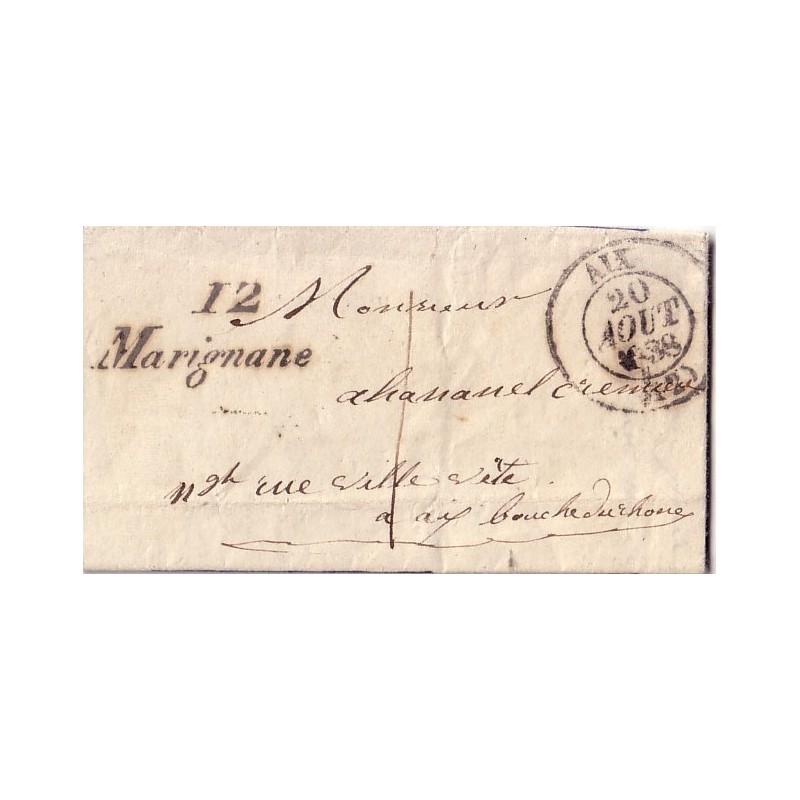 12
Marignane
AIX
20
AOUT
1838
(12)
Monsieur
ahananel cremieu
ngt rue ville vète
a aix bouche du rhone
1